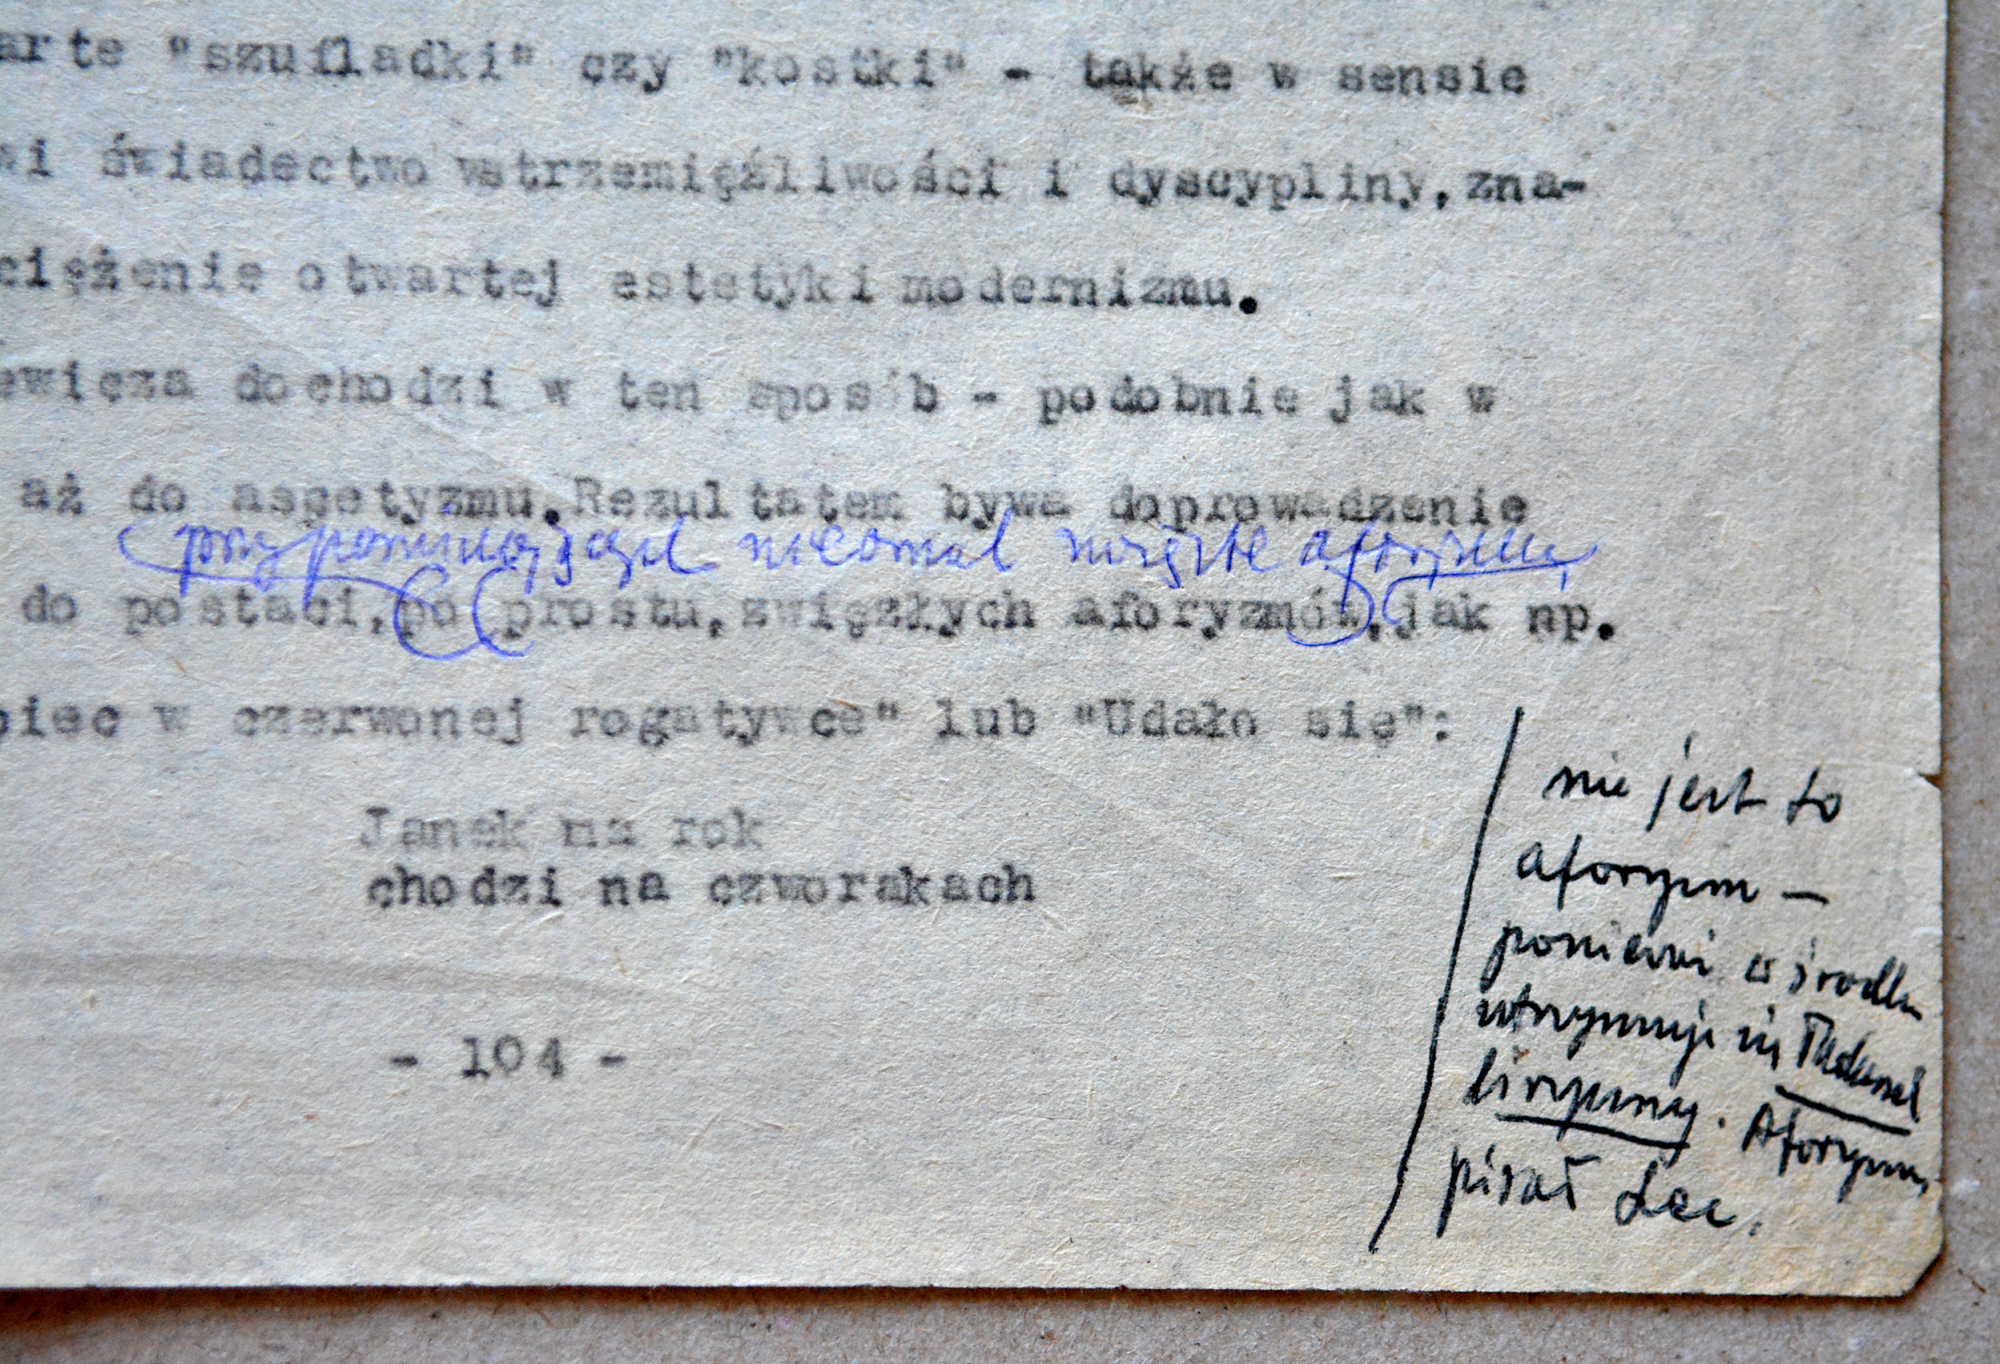 arte "szufladki" czy "kostki" - także w sensie
wi świadectwo wstrzemięźliwości i dyscypliny, zna-
ciężenie otwartej estetyki modernizmu.
ewicza dochodzi w ten sposób - podobnie jak w
aż do ascetyzmu. Rezultatem bywa doprowadzenie
przypominającej nieomal aforyzmy,
do postaci, po prostu, zwięzłych aforyzmów, jak np.
piec w czerwonej rogatywce" lub "Udało się":
Janek na rok
chodzi na czworakach
- 104 -
nie jest to
aforyzm —
ponieważ w środku
utrzymuje się ładunek
liryczny. Aforyzmy
pisał Lec.